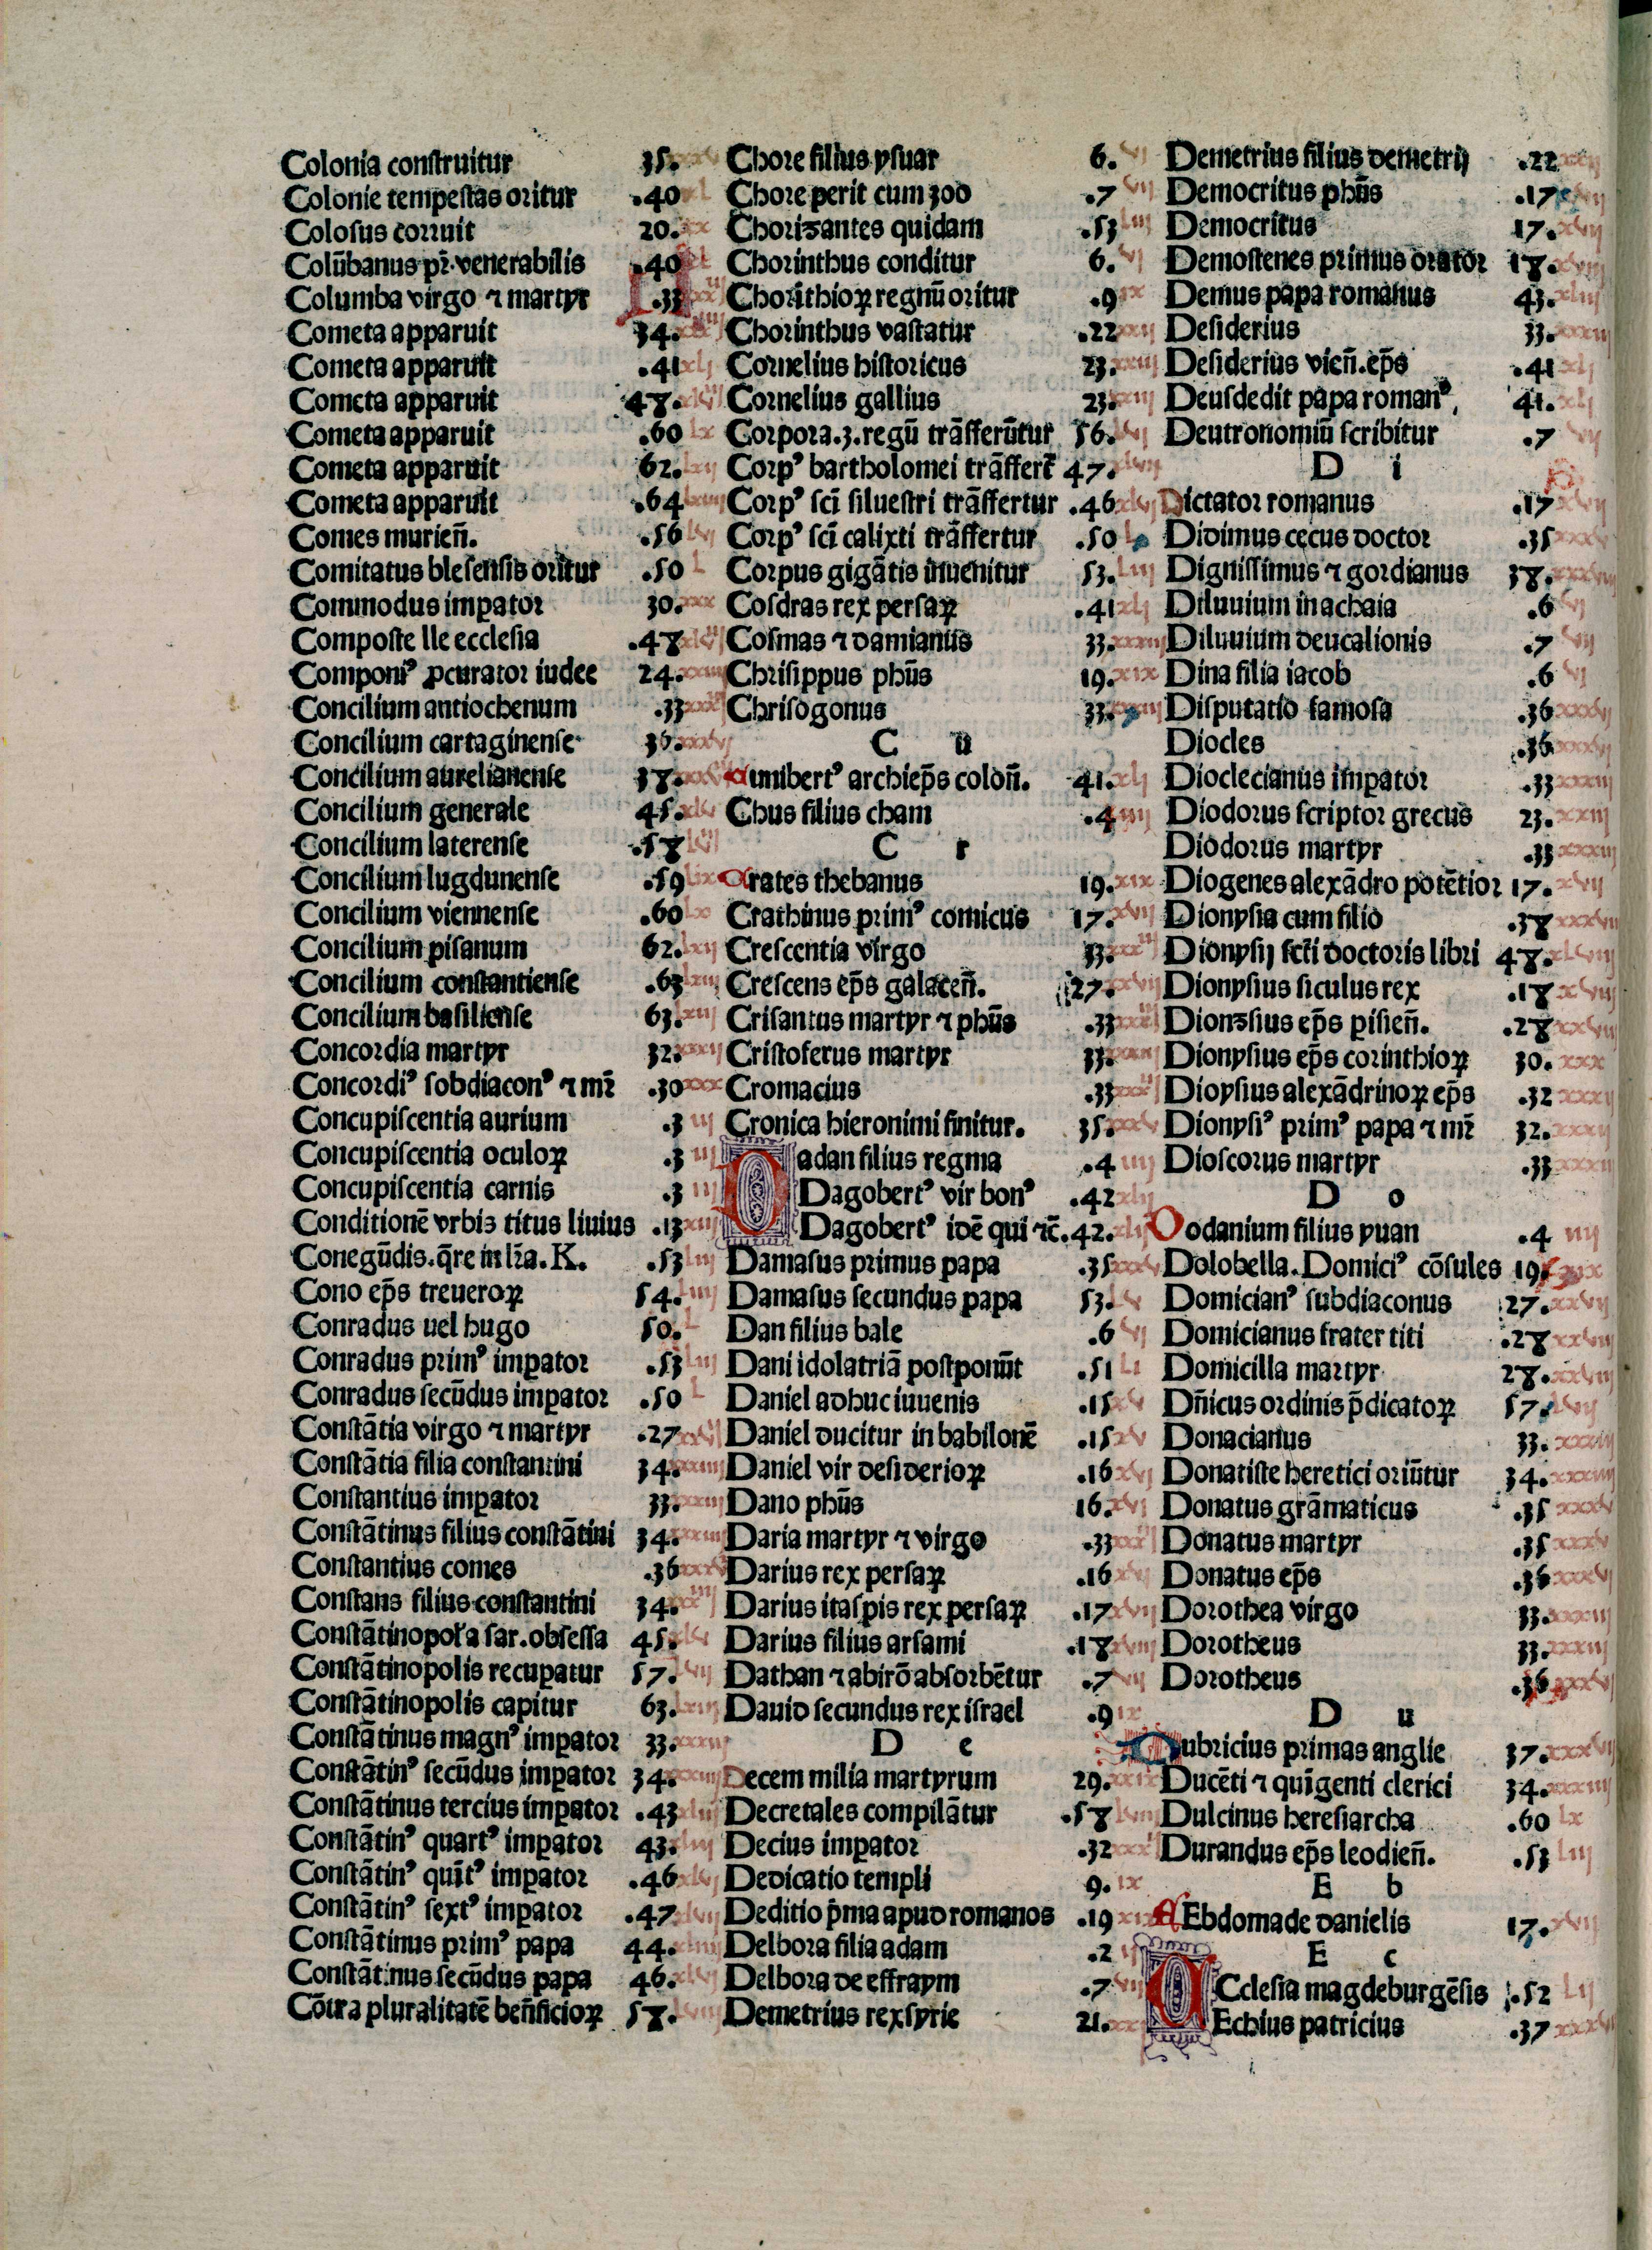 Colonia construitur 35.
Colonie tempestas oritur .40
Colosus corruit 20.
Colūbanus pr̄. venerabilis .40
Columba virgo ⁊ martyr .33
Cometa apparuit 34.
Cometa apparuit .41
Cometa apparuit 48.
Cometa apparuit .60
Cometa apparuit 62.
Cometa apparuit .64
Comes murien̄. .56
Comitatus blesensis oritur .50
Commodus imꝑator 30.
Composte lle ecclesia .48
Componiꝰ ꝓcurator iudee 24.
Concilium antiochenum .33
Concilium cartaginense 36.
Concilium aurelianense 38.
Concilium generale 45.
Concilium laterense .58
Concilium lugdunense .59
Concilium viennense .60
Concilium pisanum 62.
Concilium constantiense .63
Concilium basiliense 63.
Concordia martyr 32.
Concordiꝰ sobdiaconꝰ ⁊ mr̄ .30
Concupiscentia aurium .3
Concupiscentia oculoꝝ .3
Concupiscentia carnis .3
Conditionē vrbis titus liuius .13
Conegūdis. q̄re in lr̄a. K. .53
Cono ep̄s treueroꝝ 54.
Conradus uel hugo 50.
Conradus primꝰ imꝑator .53
Conradus secūdus imꝑator .50
Constātia virgo ⁊ martyr .27
Constātia filia constantini 34.
Constantius imꝑator 33.
Constātinus filius constātini 34.
Constantius comes .36
Constans filius constantini 34.
Constātinopoła sar. obsessa 45.
Constātinopolis recuꝑatur 57.
Constātinopolis capitur 63.
Constātinus magnꝰ imꝑator 33.
Constātinꝰ secūdus imꝑator 34.
Constātinus tercius imꝑator .43
Constātinꝰ quartꝰ imꝑator 43.
Constātinꝰ quītꝰ imꝑator .46
Constātinꝰ sextꝰ imꝑator .47
Constātinus primꝰ papa 44.
Constātinus secūdus papa 46.
Cōtra pluralitatē ben̄ficioꝝ 58.
Chore filius ysuar 6.
Chore perit cum 300 .7
Chorizantes quidam .53
Chorinthus conditur 6.
Chorīthioꝝ regnū oritur .9
Chorinthus vastatur .22
Cornelius historicus 23.
Cornelius gallius 23.
Corpora .3. regū trāsferūtur 56.
Corpꝰ bartholomei trāsfert̄ 47.
Corpꝰ scī siluestri trāsfertur .46
Corpꝰ scī calixti trāsfertur .50
Corpus gigātis inuenitur 53.
Cosdras rex persaꝝ .41
Cosmas ⁊ damianus 33.
Chrisippus phūs 19.
Chrisogonus 33.
C u
Cunibertꝰ archiep̄s colon̄. 41.
Chus filius cham .4
C r
Crates thebanus 19.
Crathinus primꝰ comicus 17.
Crescentia virgo 33.
Crescens ep̄s galacen̄. 27.
Crisantus martyr ⁊ phūs .33
Cristoferus martyr 33.
Cromacius .33
Cronica hieronimi finitur. 35.
Dadan filius regma .4
Dagobertꝰ vir bonꝰ .42
Dagobertꝰ idē qui ⁊c̄. 42.
Damasus primus papa .35
Damasus secundus papa 53.
Dan filius bale .6
Dani idolatriā postponūt .51
Daniel adhuc iuuenis .15
Daniel ducitur in babilonē .15
Daniel vir desiderioꝝ .16
Dano phūs 16.
Daria martyr ⁊ virgo .33
Darius rex persaꝝ .16
Darius itaspis rex persaꝝ .17
Darius filius arsami .18
Dathan ⁊ abirō absorbētur .7
Dauid secundus rex israel .9
D e
Decem milia martyrum 29.
Decretales compilātur .58
Decius imꝑator .32
Dedicatio templi 9.
Deditio p̄ma apud romanos .19
Delbora filia adam .2
Delbora de effraym .7
Demetrius rex syrie 21.
Demetrius filius demetrij .22
Democritus phūs .17
Democritus 17.
Demostenes primus orator 18.
Demus papa romanus 43.
Desiderius 33.
Desiderius vien̄. ep̄s .41
Deusdedit papa romanꝰ 41.
Deutronomiū scribitur .7
D i
Dictator romanus .17
Didimus cecus doctor .35
Dignissimus ⁊ gordianus 38.
Diluuium in achaia .6
Diluuium deucalionis .7
Dina filia iacob .6
Disputatio famosa .36
Diocles .36
Dioclecianus imꝑator .33
Diodorus scriptor grecus 23.
Diodorus martyr .33
Diogenes alexādro potētior 17.
Dionysia cum filio .38
Dionysij scti̅ doctoris libri 48.
Dionysius siculus rex .18
Dionzsius ep̄s ꝑisien̄. .28
Dionysius ep̄s corinthioꝝ 30.
Dioysius alexādrinoꝝ ep̄s .32
Dionysiꝰ primꝰ papa ⁊ mr̄ 32.
Dioscorus martyr .33
D o
Dodanium filius yuan .4
Dolobella. Domiciꝰ cōsules 19.
Domicianꝰ subdiaconus 27.
Domicianus frater titi .28
Domicilla martyr 28.
Dn̄icus ordinis p̄dicatoꝝ 57.
Donacianus 33.
Donatiste heretici oriūtur 34.
Donatus grāmaticus .35
Donatus martyr .35
Donatus ep̄s .36
Dorothea virgo 33.
Dorotheus 33.
Dorotheus .36
D u
Dubricius primas anglie 37.
Ducēti ⁊ quīgenti clerici 34.
Dulcinus heresiarcha .60
Durandus ep̄s leodien̄. .53
E b
Ebdomade danielis 17.
E c
ECclesia magdeburgēsis .52
Echius patricius .37